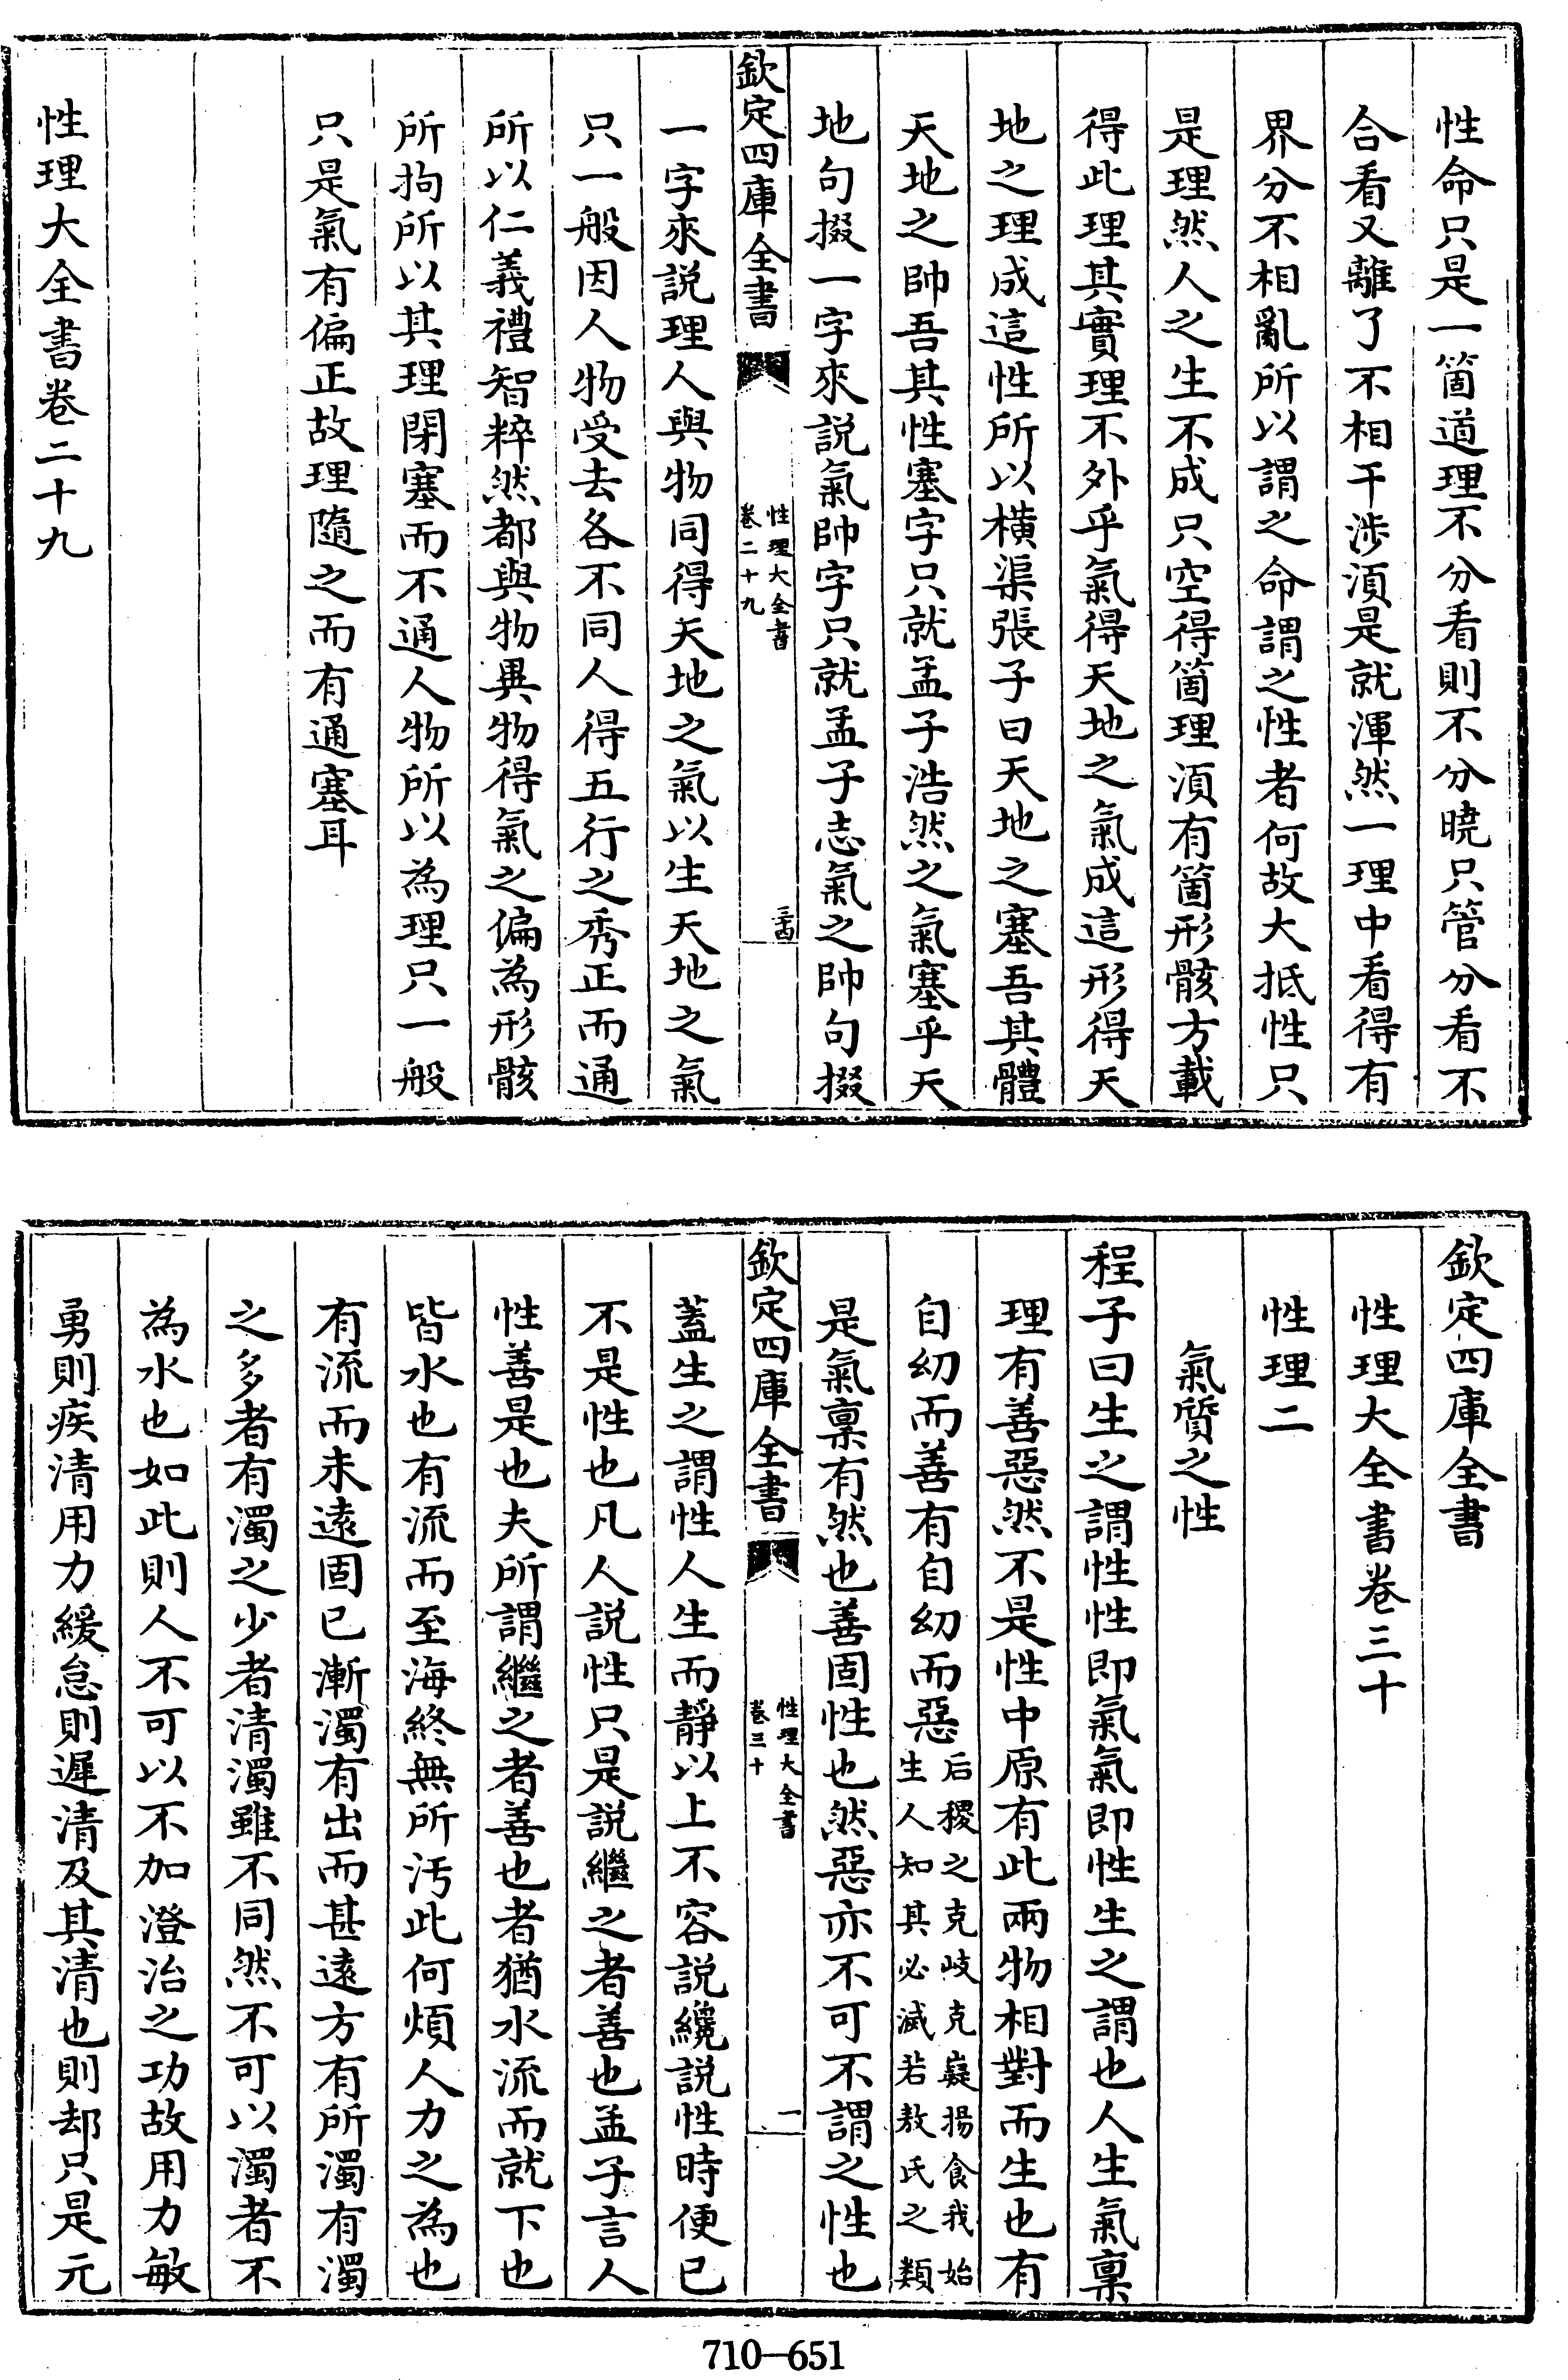 性命只是一箇道理不分看則不分曉只管分看不
合看又離了不相干渉湏是就渾然一理中看得有
界分不相亂所以謂之命謂之性者何故大抵性只
是理然人之生不成只空得箇理湏有箇形骸方載
得此理其實理不外乎氣得天地之氣成這形得天
地之理成這性所以橫渠張子曰天地之塞吾其體
天地之帥吾其性塞字只就孟子浩然之氣塞乎天
地句掇一字來説氣帥字只就孟子志氣之帥句掇
欽定四庫全書
性理大全書
卷二十九
三十四
一字來説理人與物同得天地之氣以生天地之氣
只一般因人物受去各不同人得五行之秀正而通
所以仁義禮智粹然都與物異物得氣之偏為形骸
所拘所以其理閉塞而不通人物所以為理只一般
只是氣有偏正故理隨之而有通塞耳
性理大全書卷二十九
欽定四庫全書
性理大全書卷三十
性理二
氣質之性
程子曰生之謂性性即氣氣即性生之謂也人生氣稟
理有善惡然不是性中原有此兩物相對而生也有
自幼而善有自幼而惡后稷之克岐克嶷揚食我始
生人知其必滅若敖氏之類
是氣稟有然也善固性也然惡亦不可不謂之性也
欽定四庫全書
性理大全書
卷三十
一
蓋生之謂性人生而靜以上不容説纔説性時便已
不是性也凡人説性只是説繼之者善也孟子言人
性善是也夫所謂繼之者善也者猶水流而就下也
皆水也有流而至海終無所汚此何煩人力之為也
有流而未遠固已漸濁有出而甚遠方有所濁有濁
之多者有濁之少者清濁雖不同然不可以濁者不
為水也如此則人不可以不加澄治之功故用力敏
勇則疾清用力緩怠則遲清及其清也則却只是元
710—651